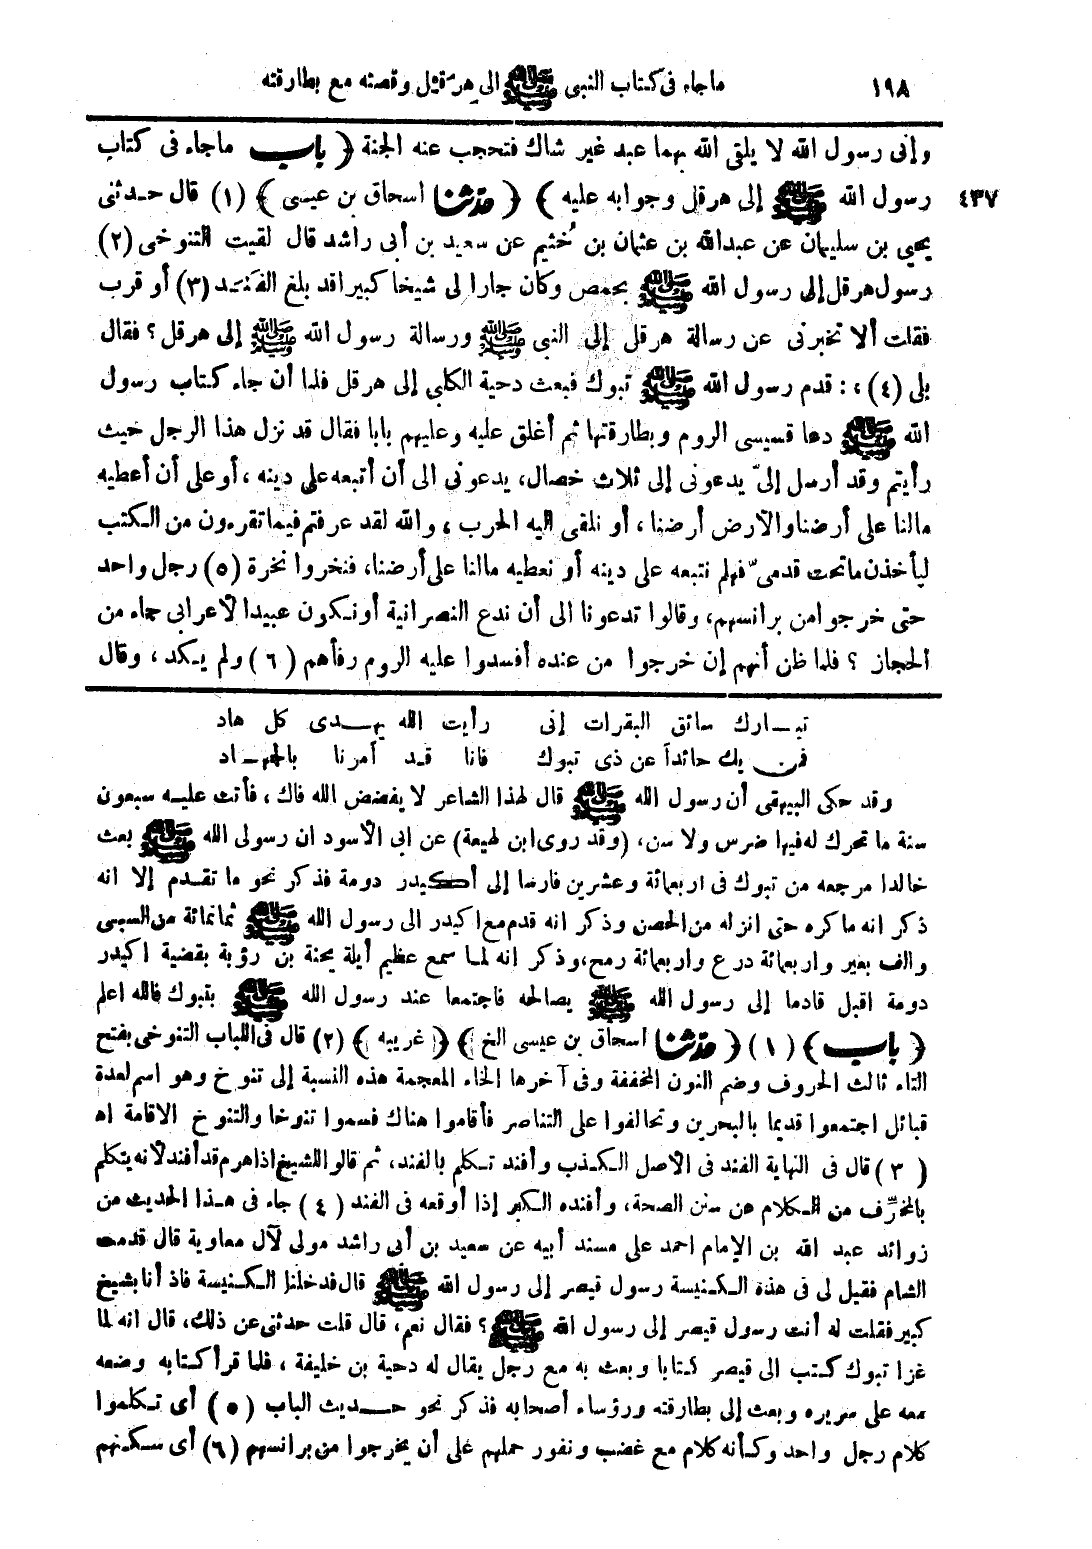 ١٩٨ ماجاء فى كتاب النبى ﷺ الى هرقيل وقصته مع بطارقته
وأنى رسول الله لا يلقى الله بهما عبد غير شاك فتحجب عنه الجنة ﴿ باب ماجاء فى كتاب
رسول الله ﷺ إلى هرقل وجوابه عليه ﴾ ﴿ حدثنا اسحاق بن عيسى ﴾ (١) قال حدثنى ٤٣٧
يحيى بن سليمان عن عبدالله بن عثمان بن خُثيم عن سعيد بن أبى راشد قال لقيت التنوخى (٢)
رسول هرقل إلى رسول الله ﷺ بحمص وكان جارا لى شيخا كبيرا قد بلغ الفَنَد (٣) أو قرب
فقلت ألا تخبرنى عن رسالة هرقل إلى النبى ﷺ ورسالة رسول الله ﷺ إلى هرقل؟ فقال
بلى (٤)، : قدم رسول الله ﷺ تبوك فبعث دحية الكلبى إلى هرقل فلما أن جاء كتاب رسول
الله ﷺ دعا قسيسى الروم وبطارقتها ثم أغلق عليه وعليهم بابا فقال قد نزل هذا الرجل حيث
رأيتم وقد أرسل إلىّ يدعونى إلى ثلاث خصال، يدعونى الى أن أتبعه على دينه ، أو على أن أعطيه
مالنا على أرضنا والأرض أرضنا، أو نلقى اليه الحرب ، والله لقد عرفتم فيما تقرءون من الكتب
ليأخذن ماتحت قدمىّ فهلم نتبعه على دينه أو نعطيه مالنا على أرضنا، فنخروا نخرة (٥) رجل واحد
حتى خرجوا من برانسهم، وقالوا تدعونا الى أن ندع النصرانية أو نكون عبيدا لأعرابى جاء من
الحجاز ؟ فلما ظن أنهم إن خرجوا من عنده أفسدوا عليه الروم رفأهم (٦) ولم يكد ، وقال
تبارك سائق البقرات إنى رأيت الله يهدى كل هاد
فمن يك حائدا عن ذى تبوك فانا قد أمرنا بالجهاد
وقد حكى البيهقى أن رسول الله ﷺ قال لهذا الشاعر لا يفضض الله فاك ، فأتت عليه سبعون
سنة ما تحرك له فيها ضرس ولا سن، (وقد روى ابن لهيعة) عن ابى الأسود ان رسولى الله ﷺ بعث
خالدا مرجعه من تبوك فى اربعمائة وعشرين فارسا إلى أكيدر دومة فذكر نحو ما تقدم إلا انه
ذكر انه ماكره حتى انزله من الحصن وذكر انه قدم مع اكيدر الى رسول الله ﷺ ثمانمائة من السبى
والف بعير واربعمائة درع واربعمائة رمح، وذكر انه لما سمع عظيم أيلة يحنة بن رؤبة بقضية اكيدر
دومة اقبل قادما إلى رسول الله ﷺ يصالحه فاجتمعا عند رسول الله ﷺ بتبوك فالله اعلم
﴿ باب ﴾ (١) ﴿ حدثنا اسحاق بن عيسى الخ ﴾ ﴿ غريبه ﴾ (٢) قال فى اللباب التنوخى بفتح
التاء ثالث الحروف وضم النون المخففة وفى آخرها الخاء المعجمة هذه النسبة إلى تنوخ وهو اسم لعدة
قبائل اجتمعوا قديما بالبحرين وتحالفوا على التناصر فأقاموا هناك فسموا تنوخا والتنوخ الاقامة اه
(٣) قال فى النهاية الفند فى الأصل الكذب وأفند تكلم بالفند، ثم قالوا للشيخ اذا هرم قد أفند لأنه يتكلم
بالمخرِّف من الكلام عن سنن الصحة، وأفنده الكبر إذا أوقعه فى الفند (٤) جاء فى هذا الحديث من
زوائد عبد الله بن الإمام احمد على مسند أبيه عن سعيد بن أبى راشد مولى لآل معاوية قال قدمت
الشام فقيل لى فى هذه الكنيسة رسول قيصر إلى رسول الله ﷺ قال فدخلنا الكنيسة فاذ أنا بشيخ
كبير فقلت له أنت رسول قيصر إلى رسول الله ﷺ ؟ فقال نعم، قال قلت حدثنى عن ذلك، قال انه لما
غزا تبوك كتب الى قيصر كتابا وبعث به مع رجل يقال له دحية بن خليفة ، فلما قرأ كتابه وضعه
معه على سريره وبعث إلى بطارقته ورؤساء أصحابه فذكر نحو حديث الباب (٥) أى تكلموا
كلام رجل واحد وكأنه كلام مع غضب ونفور حملهم على أن يخرجوا من برانسهم (٦) أى سكنهم